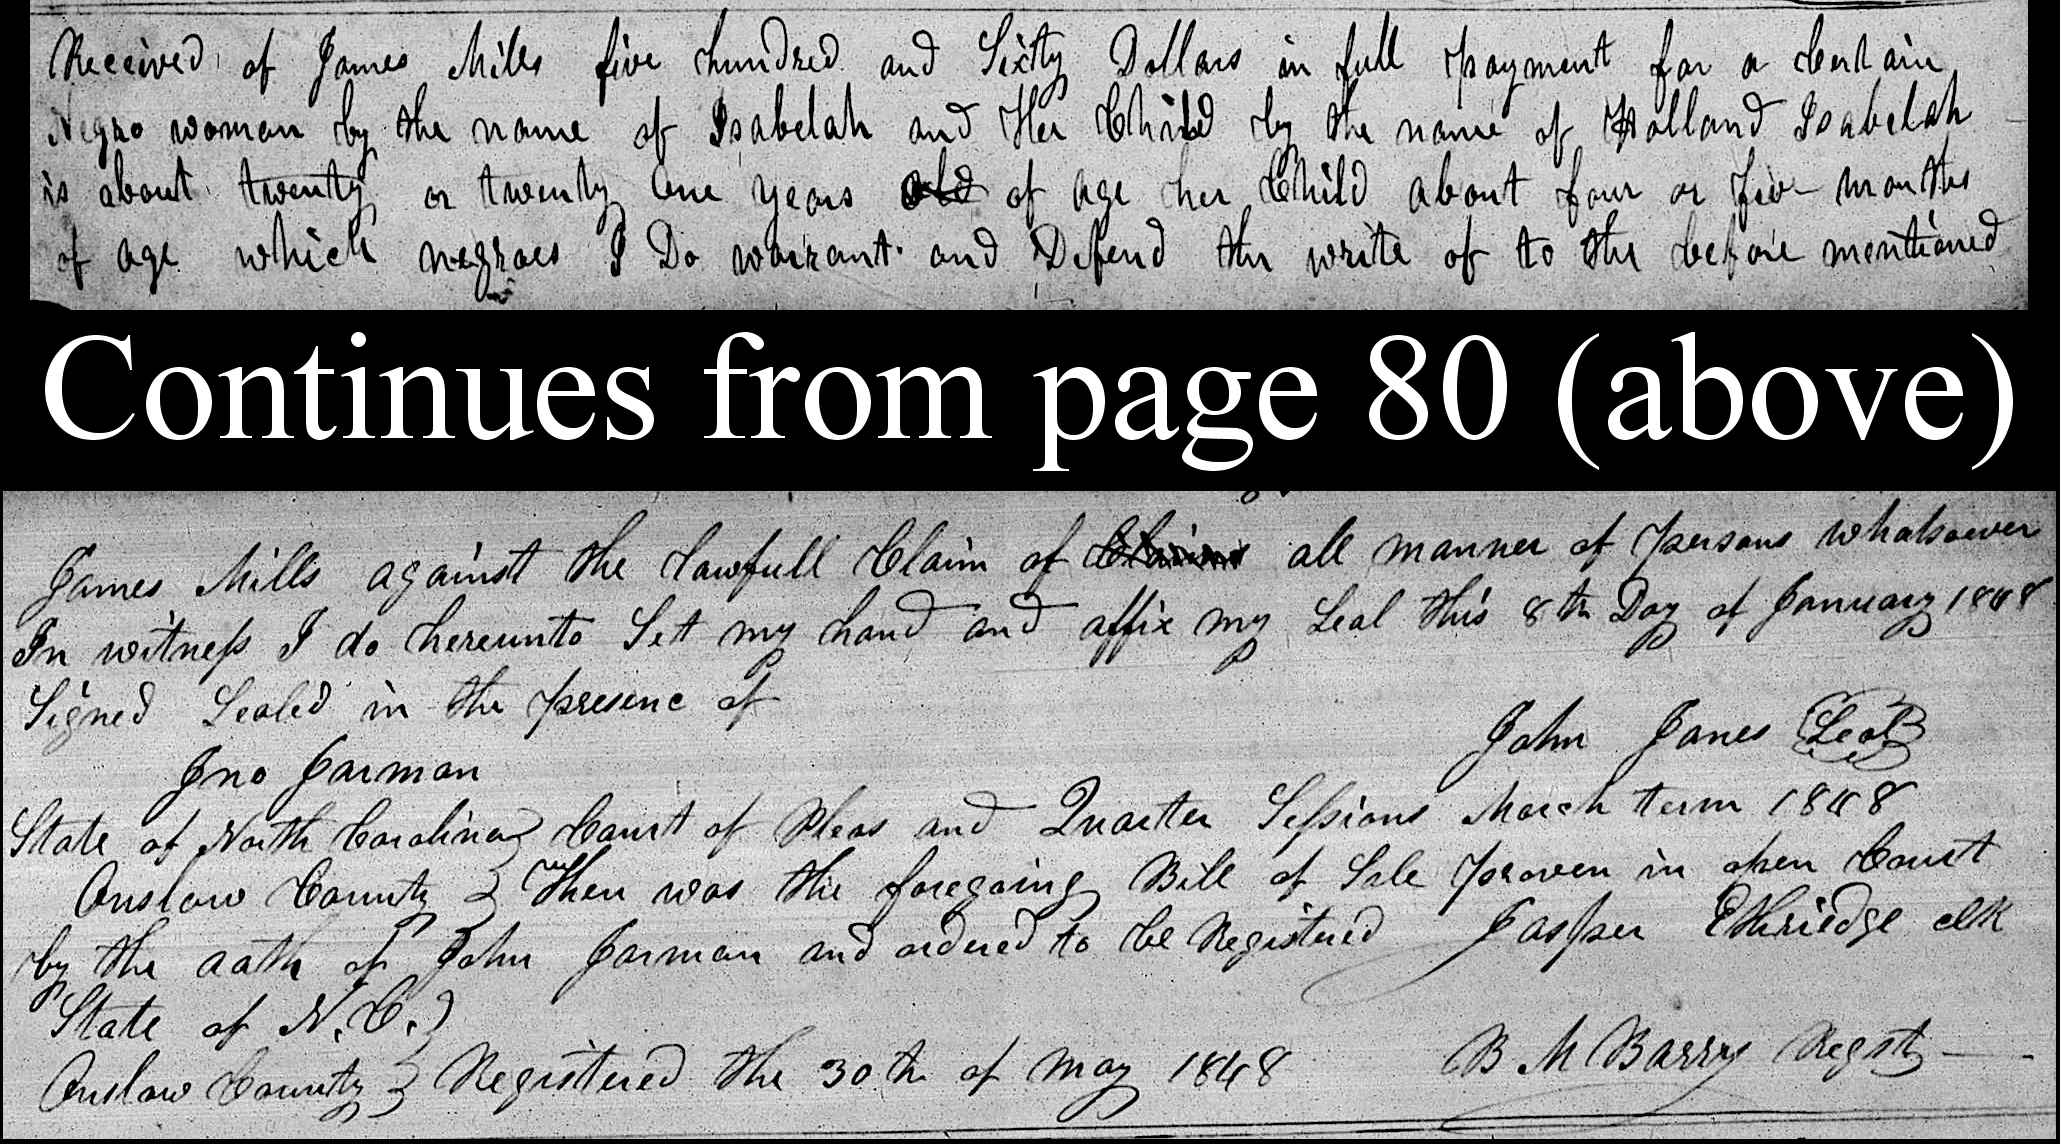 Received of James Mills five hundred and Sixty Dollars in full payment for a Certain
Negro woman by the name of Isabelah and Her Child by the name of Holland Isabelah
is about twenty or twenty one years old of age her Child about four or five months
of age which negroes I Do warrant and Defend the write of to the before mentioned
Continues from page 80 (above)
James Mills against the Lawfull Claim of Claims all manner of persons whatsoever
In witness I do hereunto Set my hand and affix my Seal this 8th Day of January 1848
Signed Sealed in the presenc of
John Jones Seal
Jno Jarman
State of North Carolina Court of Pleas and Quarter Sessions March term 1848
Onslow County Then was the foregoing Bill of Sale proven in open Court
by the oath of John Jarman and ordered to be Registered Jasper Ethriedge clk
State of N. C.
Onslow County Registered the 30th of may 1848 B M Barry Regst